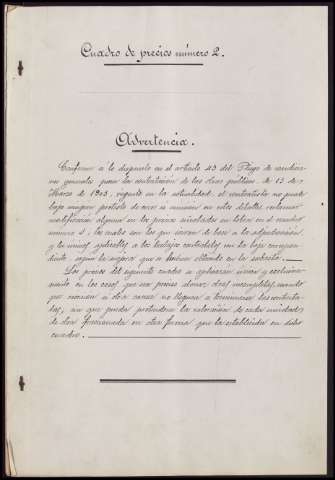 Cuadro de precios número 2.
Advertencia.
Conforme á lo dispuesto en el artículo 43 del Pliego de condicio-
nes generales para la contratación de las obras públicas de 13 de
Marzo de 1903, vigente en la actualidad, el contratista no puede
bajo ningún pretesto de error ú omisión en estos detalles reclamar
modificación alguna en los precios señalados en letra en el cuadro
número 1, los cuales son los que sirven de base á la adjudicación
y los únicos aplicables á los trabajos contratados con la baja correspon-
diente, según la mejora que se hubiese obtenido en la subasta.
Los precios del siguiente cuadro se aplicarán única y exclusiva-
mente en los casos que sea preciso abonar obras incompletas, cuando
por rescisión ú otra causa no lleguen á terminarse las contrata-
das, sin que pueda pretenderse la valoración de cada unidad
de obra fraccionada en otra forma que la establecida en dicho
cuadro.